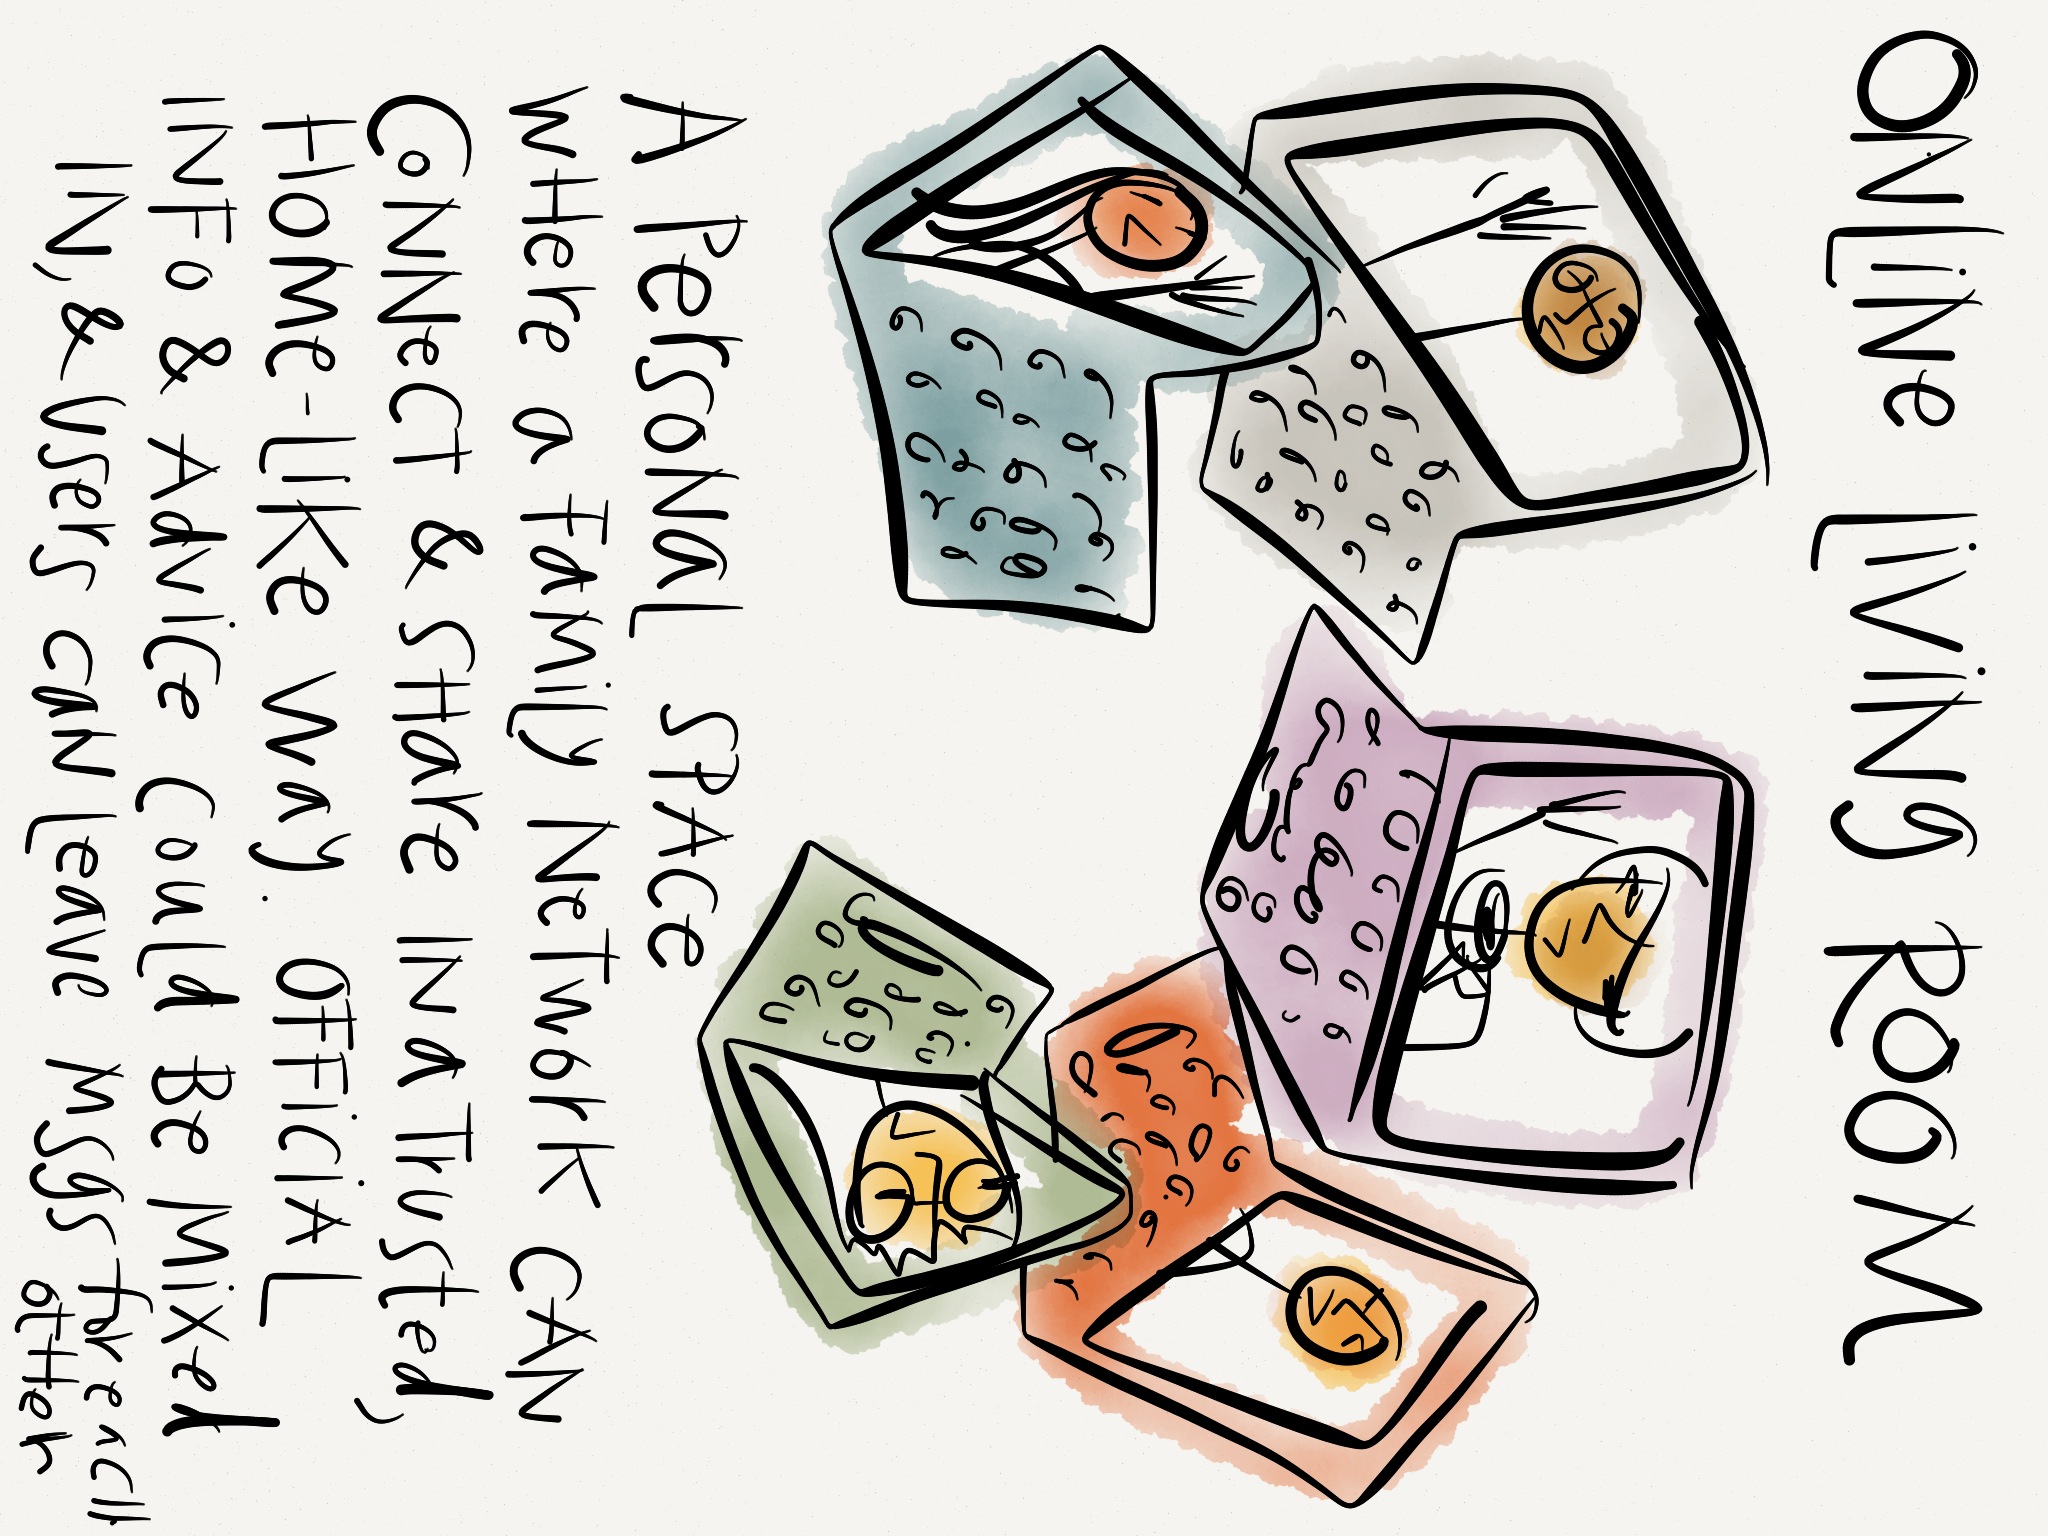 ONLINE LIVING ROOM
A PERSONAL SPACE
WHERE A FAMILY NETWORK CAN
CONNECT & SHARE IN A TRUSTED,
HOME-LIKE WAY. OFFICIAL
INFO & ADVICE COULD BE MIXED
IN, & USERS CAN LEAVE MSGS FOR EACH
OTHER